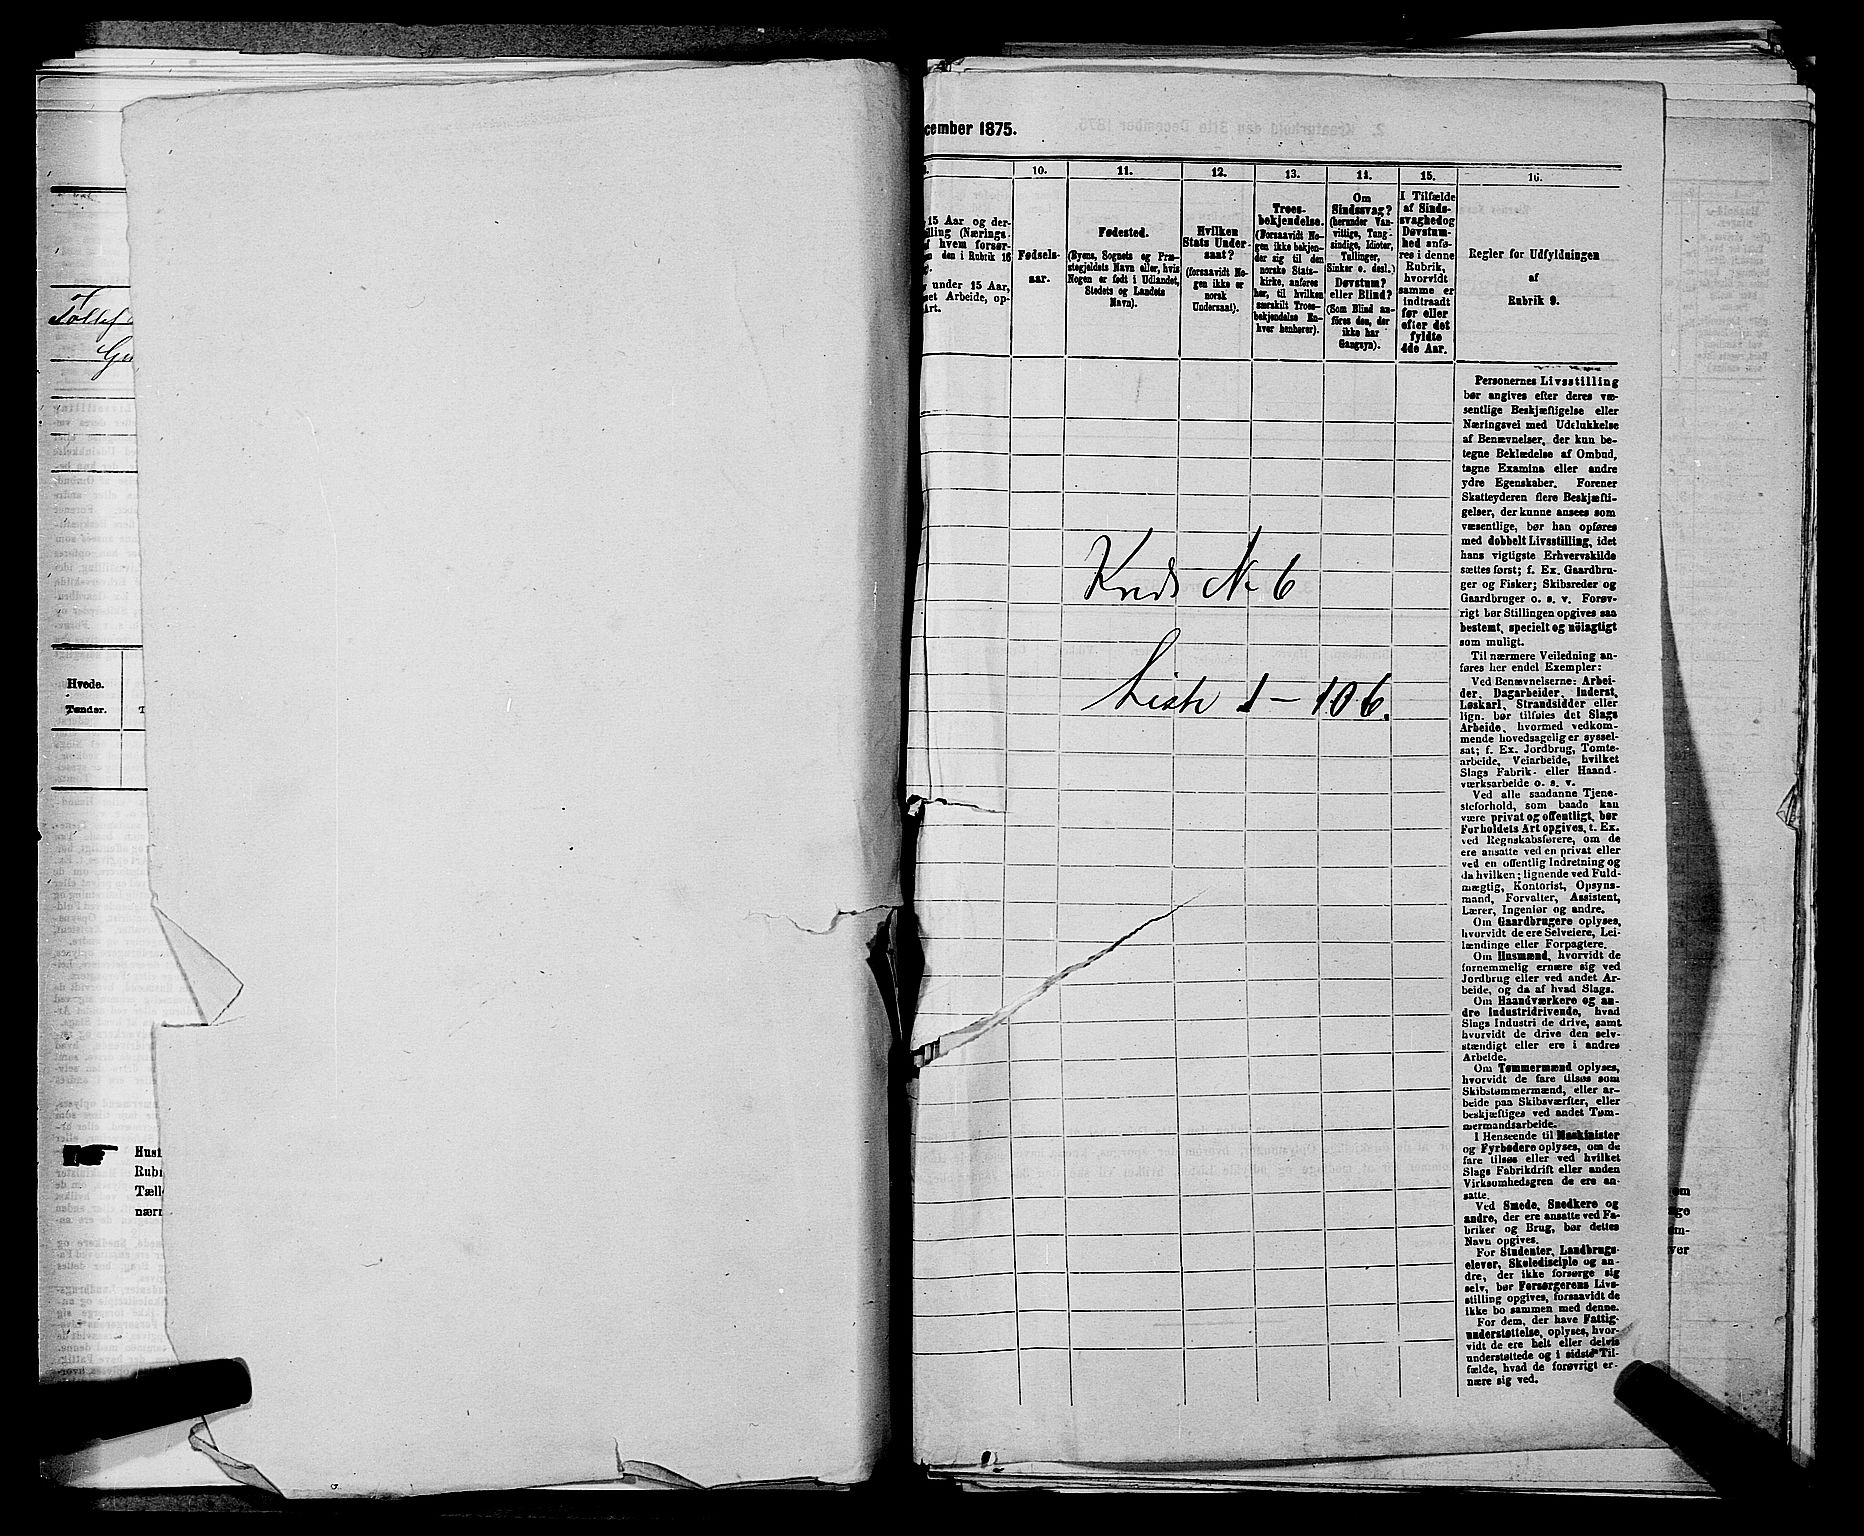 Hvede.
Tønder.
cember 1875.
10.
11.
12.
13.
14.
15.
16.
15 Aar og der-
illing (Nærings
hvem forsør-
en den i Rubrik 16
under 15 Aar,
set Arbeide, op-
Art.
Fødsels-
aar.
Fødested.
(Byens, Sognets og Præ-
stegjeldets Navn eller, hvis
Nogen er født i Udlandet,
Stedets og Landets
Navn).
Hvilken
Stats Under-
saat?
(forsaavidt No-
gen ikke er
norsk
Undersaat).
Troes-
bekjendelse.
(Forsaavidt No-
gen ikke bekjen-
der sig til den
norske Stats-
kirke, anføres
her, til hvilken
særskilt Troes-
bekjendelse En-
hver henhører).
Om
Sindssvag?
(herunder Van-
vittige, Tung-
sindige, Idioter,
Tullinger,
Sinker o. desl.)
Døvstum?
eller Blind?
(Som Blind an-
føres den, der
ikke har
Gangsyn).
I Tilfælde
af Sinds-
svaghed og
Døvstum-
hed anfø-
res i denne
Rubrik,
hvorvidt
samme er
indtraadt
før eller
efter det
fyldte
4de Aar.
Regler for Udfyldningen
af
Rubrik 9.
Personernes Livsstilling
bør angives efter deres væ-
sentlige Beskjæftigelse eller
Næringsvei med Udelukkelse
af Benævnelser, der kun be-
tegne Beklædelse af Ombud,
tagne Examina eller andre
ydre Egenskaber. Forener
Skatteyderen flere Beskjæfti-
gelser, der kunne ansees som
væsentlige, bør han opføres
med dobbelt Livsstilling, idet
hans vigtigste Erhvervskilde
sættes først; f. Ex. Gaardbru-
ger og Fisker; Skibsreder og
Gaardbruger o. s. v. Forøv-
rigt bør Stillingen opgives saa
bestemt, specielt og nöiagtigt
som muligt.
Til nærmere Veiledning an-
føres her endel Exempler:
Ved Benævnelserne: Arbei-
der, Dagarbeider, Inderst,
Løskarl, Strandsidder eller
lign. bør tilføies det Slags
Arbeide, hvormed vedkom-
mende hovedsagelig er syssel-
sat; f. Ex. Jordbrug, Tomte-
arbeide, Veiarbeide, hvilket
Slags Fabrik- eller Haand-
værksarbeide o. s. v.
Ved alle saadanne Tjene-
steforhold, som baade kan
være privat og offentligt, bør
Forholdets Art opgives, t. Ex.
ved Regnskabsførere, om de
ere ansatte ved en privat eller
ved en offentlig Indretning og
da hvilken; lignende ved Fuld-
mægtig, Kontorist, Opsyns-
mand, Forvalter, Assistent,
Lærer, Ingeniør og andre.
Om Gaardbrugere oplyses,
hvorvidt de ere Selveiere, Lei-
lændinge eller Forpagtere.
Om Husmænd, hvorvidt de
fornemmelig ernære sig ved
Jordbrug eller ved andet Ar-
beide, og da af hvad Slags.
Om Haandværkere og an-
dre Industridrivende, hvad
Slags Industri de drive, samt
hvorvidt de drive den selv-
stændigt eller ere i andres
Arbeide.
Om Tømmermænd oplyses,
hvorvidt de fare tilsøs som
Skibstømmermænd, eller ar-
beide paa Skibsværfter, eller
beskjæftiges ved andet Tøm-
mermandsarbeide.
I Henseende til Maskinister
og Fyrbødere oplyses, om de
fare tilsøs eller ved hvilket
Slags Fabrikdrift eller anden
Virksomhedsgren de ere an-
satte.
Ved Smede, Snedkere og
andre, der ere ansatte ved Fa-
briker og Brug, bør dettes
Navn opgives.
For Studenter, Landbrugs-
elever, Skoledisciple og an-
dre, der ikke forsørge sig
selv, bør Forsørgerens Livs-
stilling opgives, forsaavidt de
ikke bo sammen med denne.
For dem, der have Fattig-
understøttelse, oplyses, hvor-
vidt de ere helt eller delvis
understøttede og i sidste Til-
fælde, hvad de forøvrigt er-
nære sig ved.
Kreds No 6
Liste 1 - 106.